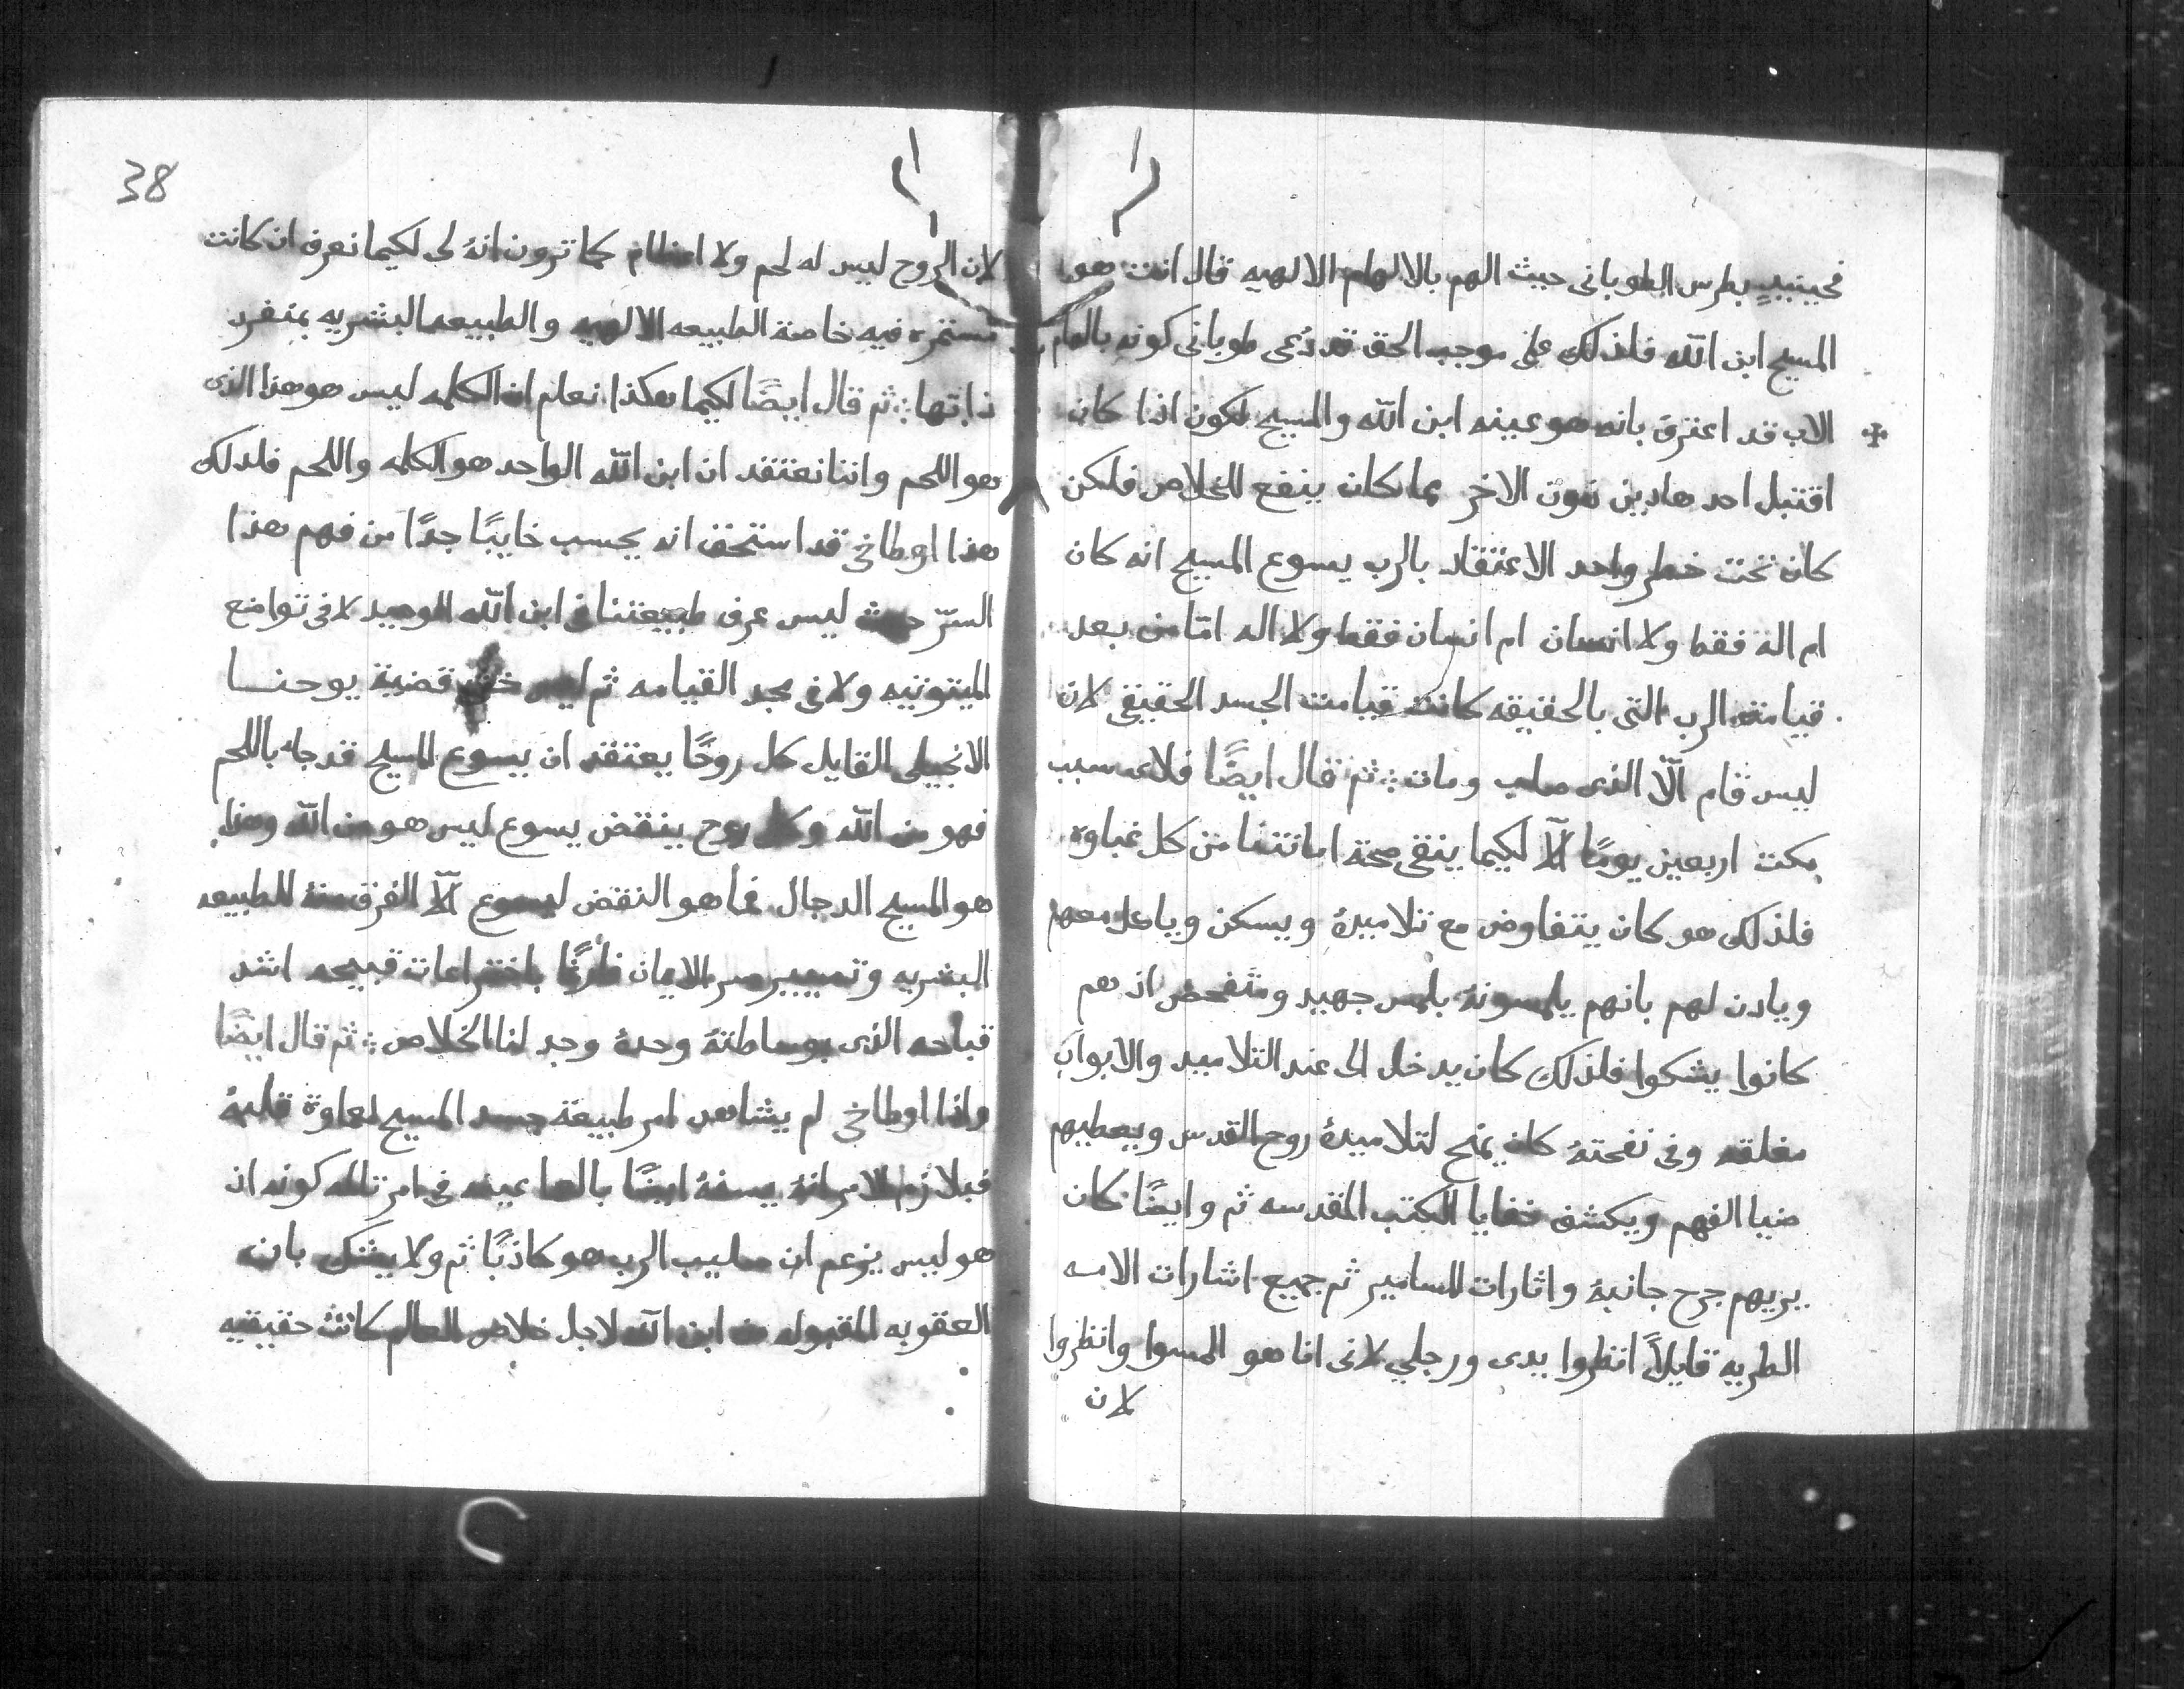 فحينيدٍ بطرس الطوبانى حيث الهم بالالهام الالهيه قال انت هو
المسيح ابن الله فلذلك على موجب الحق قد دُعى طوبانى كونه بالهام
الاب قد اعترف بانه هو عينه ابن الله والمسيح لكون اذا كان
اقتبل احد هادين دون الاخر ماكان ينفع للخلاص فلكن
كان تحت خطر واحد الاعتقاد بالرب يسوع المسيح انه كان
ام اله فقط ولا انسان ام انسان فقط ولا اله امّا من بعد
قيامة الرب التى بالحقيقه كانت قيامت الجسد الحقيقي لان
ليس قام الّا الذى صلب ومات ثم قال ايضًا فلاى سبب
مكت اربعين يومًا الّا لكيما ينقى صحة امانتنا من كل غباوه
فلذلك هو كان يتفاوض مع تلاميدهُ ويسكن وياكل معهم
ويادن لهم بانهم يلمسونهُ بلمس جهيد ومتفحص اذ هم
كانوا يشكوا فلذلك كان يدخل الى عند التلاميد والابواب
مغلقه وفى نفحتهُ كان يمنح لتلاميدهُ روح القدس ويعطيهم
ضيا الفهم ويكشف خفايا الكتب المقدسه ثم وايضًا كان
يريهم جرح جانبهُ واثارات المسامير ثم جميع اشارات الامه
الطريه قايلاً انظروا يدى ورجلي لانى انا هو المسوا وانظروا
لان
38
لان الروح ليس له لحم ولا اعظام كما ترون انهُ لى لكيما نعرف ان كانت
مستمره فيه خاصة الطبيعه الالهيه والطبيعه البشريه بمنفرد
ذاتها ثم قال ايضًا لكيما هكذا نعلم ان الكلمه ليس هو هذا الذى
هو اللحم واننا نعتقد ان ابن الله الواحد هو الكلمه واللحم فلدلك
هذا اوطاخي قد استحق انه يحسب خايبًا جدًا من فهم هذا
السّر حيث ليس عرف طبيعتنا في ابن الله الوحيد لا فى تواضع
الميتوتيه ولا في مجد القيامه ثم ليس خاف قضية يوحنـــا
الانجيلى القايل كل روحًا يعتقد ان يسوع المسيح قد جا باللحم
فهو من الله وكل روح ينقض يسوع ليس هو من الله وهذا
هو المسيح الدجال فما هو النقض ليسوع الّا الفرق منهُ للطبيعه
البشريه وتصيير سر الايمان فارغًا باختراعات قبيحه اشد
قباحه الذى بوساطتهُ وحدهُ وجد لنا الخلاص ثم قال ايضًا
واذا اوطاخي لم يشاهد امر طبيعة جسد المسيح لعماوة قلبهُ
فبلازم الامر انهُ يسفهُ ايضًا بالعما عينه في امر تالمه كونه ان
هو ليس يزعم ان صليب الرب هو كاذبًا ثم ولا يشك بان
العقوبه المقبوله من ابن الله لاجل خلاص العالم كانت حقيقيه